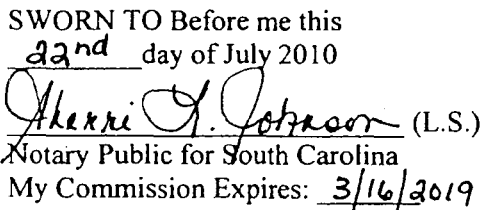 SWORN TO Before me this
22nd day of July 2010
Sherri L. Johnson (L.S.)
Notary Public for South Carolina
My Commission Expires: 3/16/2019